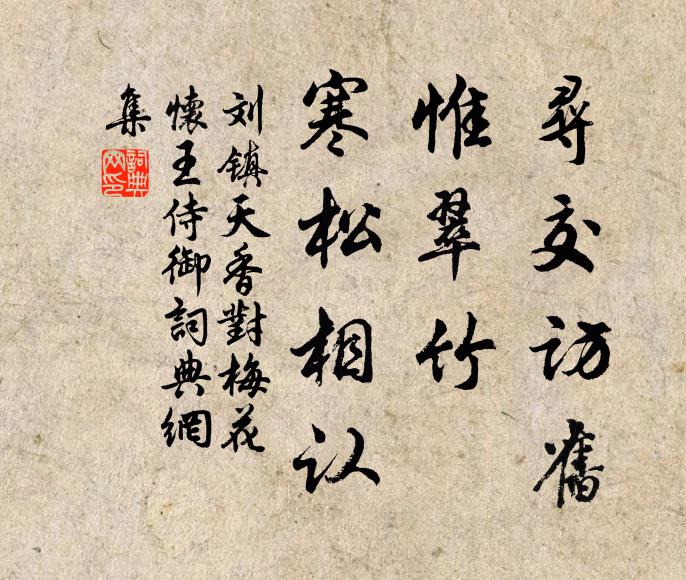 尋交访舊
惟翠竹
寒松相认
刘镇天香對梅花
懷王侍御詞典網
集
詞典
网印